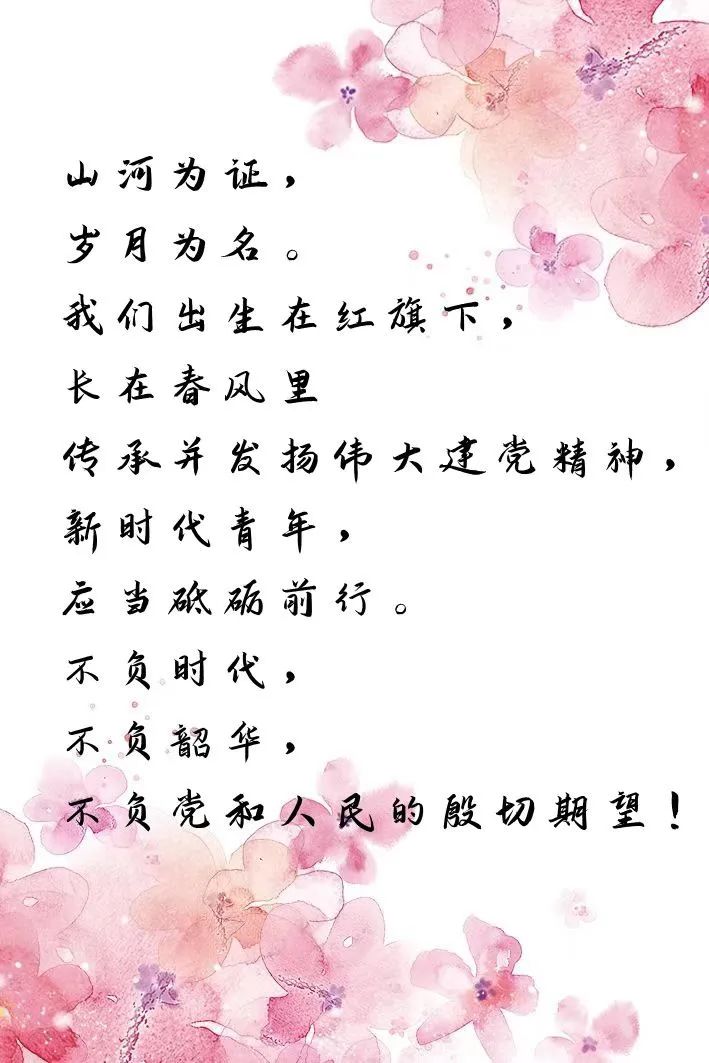 山河为证，
岁月为名。
我们出生在红旗下，
长在春风里
传承并发扬伟大建党精神，
新时代青年，
应当砥砺前行。
不负时代，
不负韶华，
不负党和人民的殷切期望！